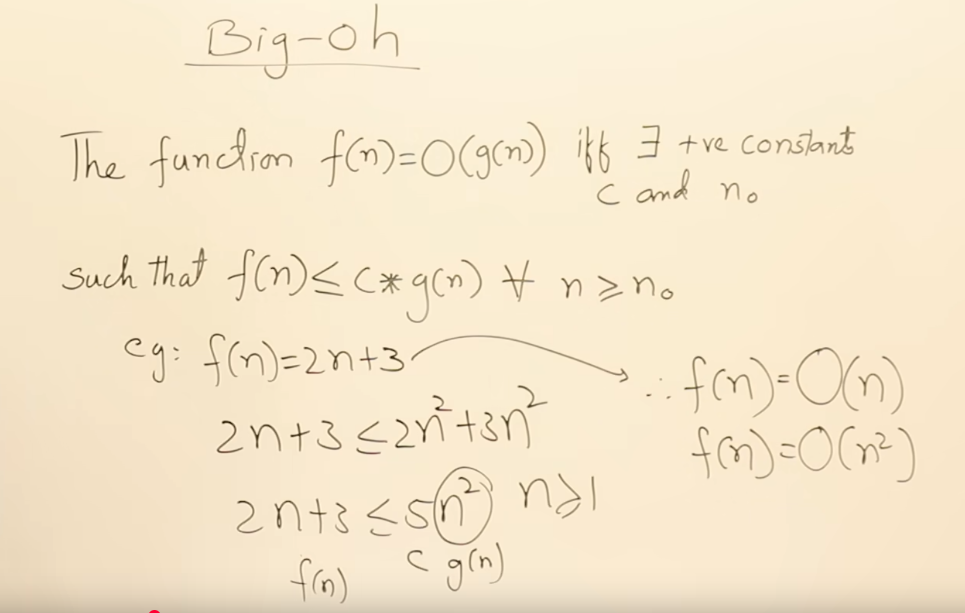 Big-oh
The function f(n)=O(g(n)) iff ∃ +ve constants
c and n₀
such that f(n)≤c*g(n) ∀ n≥n₀
eg: f(n)=2n+3
∴ f(n)=O(n)
2n+3≤2n²+3n²
f(n)=O(n²)
2n+3≤5n² n≥1
f(n) c g(n)